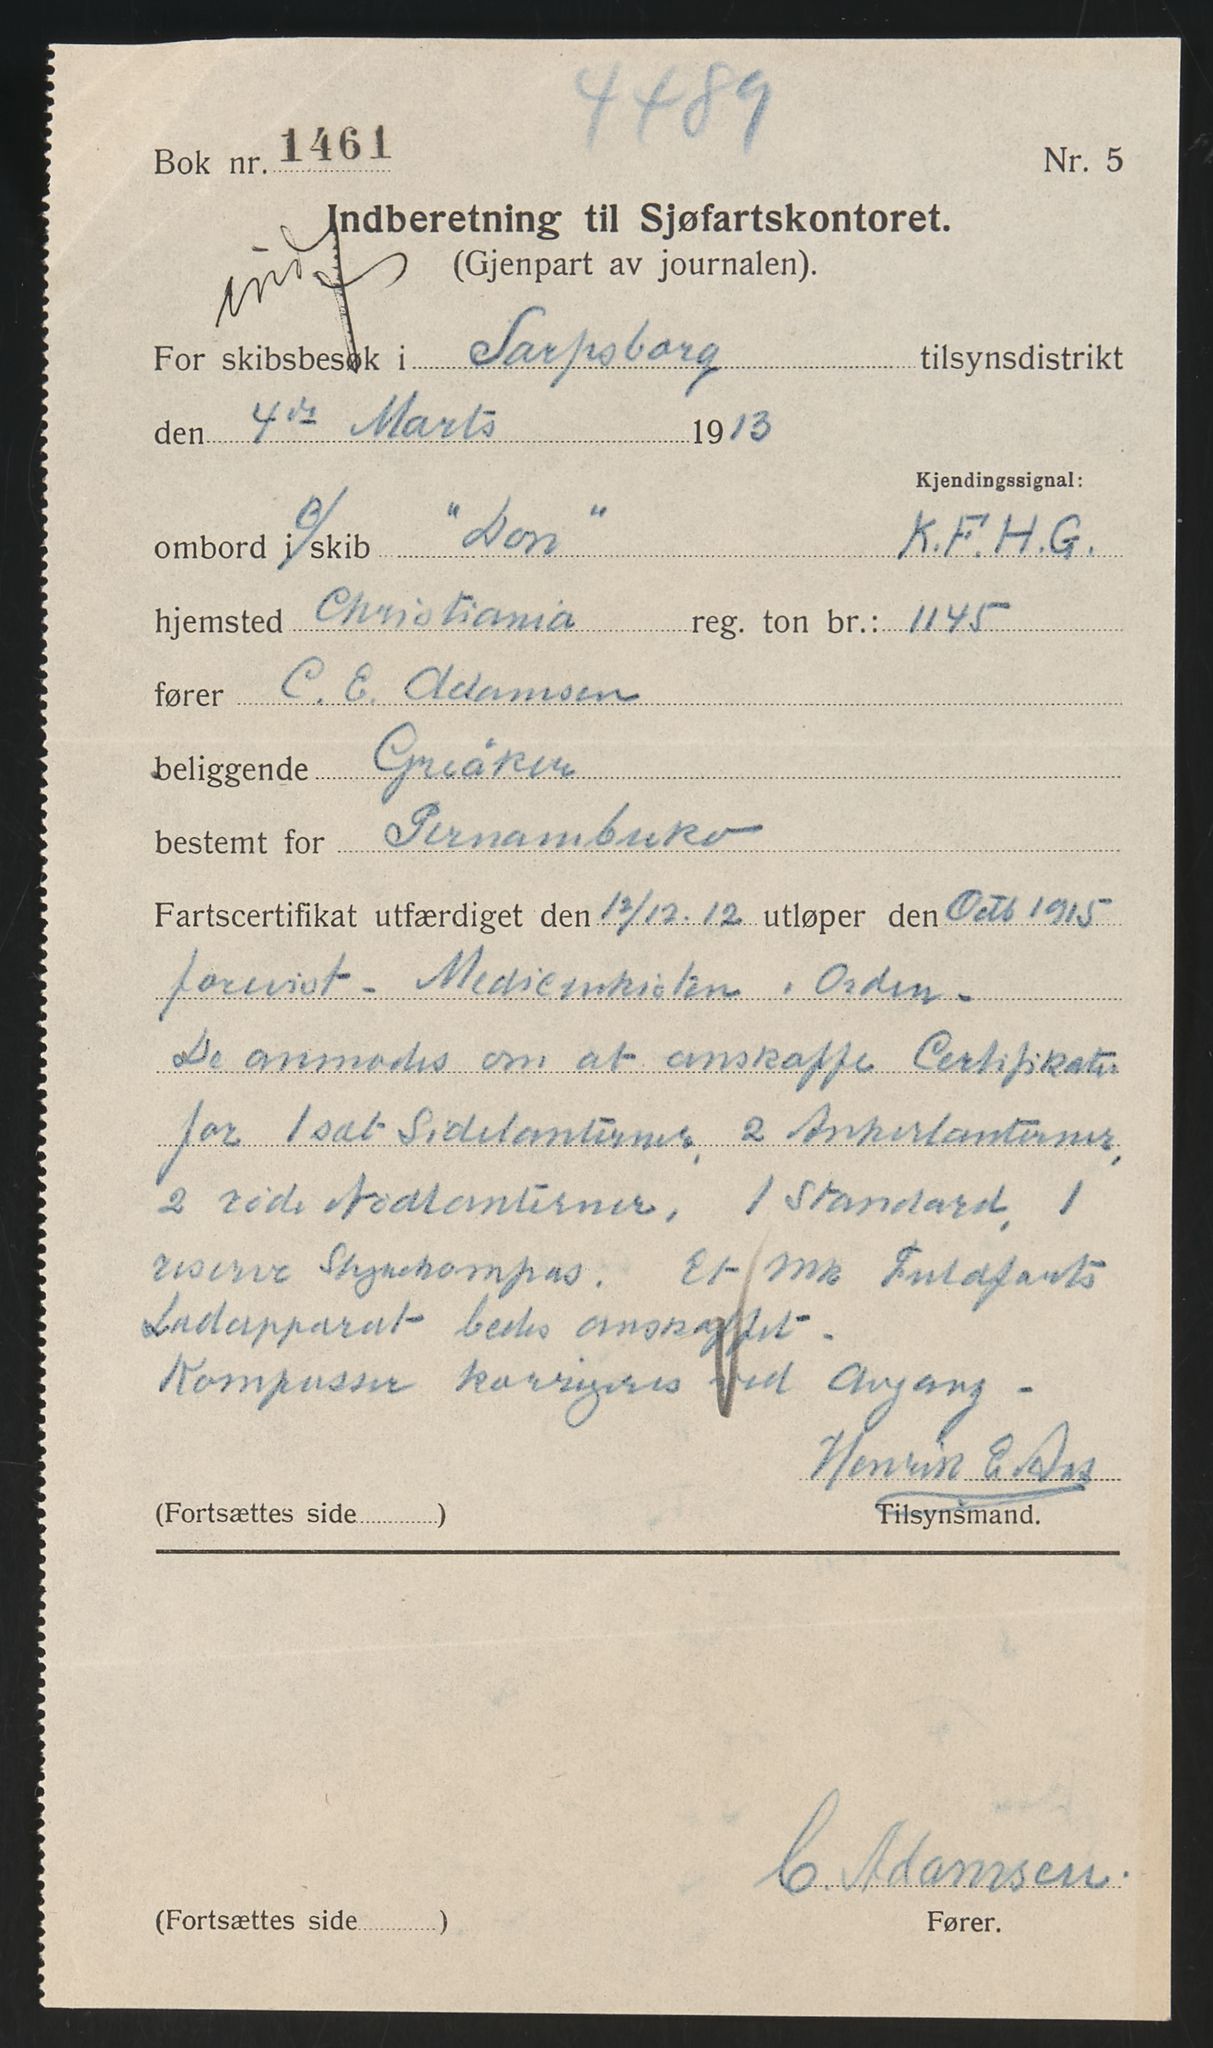 4489
Bok nr. 1461 Nr. 5
Indberetning til Sjøfartskontoret.
(Gjenpart av journalen).
For skibsbesøk i Sarpsborg tilsynsdistrikt
den 4de Marts 1913
Kjendingssignal:
ombord i B/skib "Don" K.F.H.G.
hjemsted Christiania reg. ton br.: 1145
fører C. E. Adamsen
beliggende Greåker
bestemt for Pernambuko
Fartscertifikat utfærdiget den 12/12. 12 utløper den Octb 1915
forevist - Medicinkisten i Orden -
De anmodes om at anskaffe Certifikater
for 1 sæt Sidelanterner, 2 Ankerlanterner,
2 røde Nødlanterner, 1 Standard, 1
reserve Styrekompas. Et Fuldfarts
Lodapparat bedes anskaffet -
Kompasser korrigeres ved Avgang -
Henrik E.
(Fortsættes side ) Tilsynsmand.
C. Adamsen.
(Fortsættes side ) Fører.